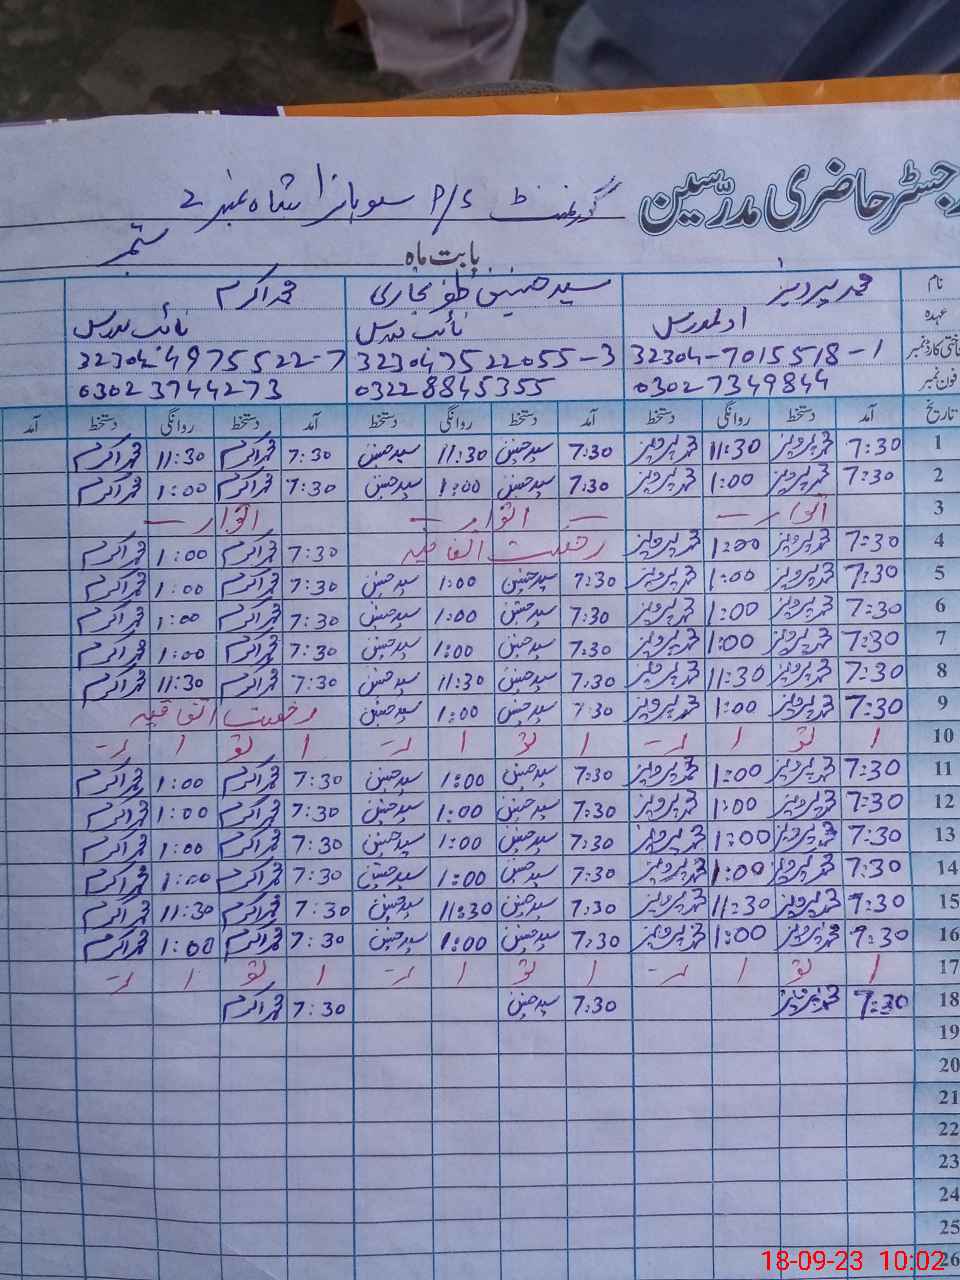 رجسٹر حاضری مدرّسین گورنمنٹ P/S سوہانرا شاہ نمبر 2
بابت ماہ ستمبر
نام محمد پرویز سید حسنین ظفر بخاری محمد اکرم
عہدہ اول مدرس نائب مدرس نائب مدرس
شناختی کارڈ نمبر 32304-7015518-1 323047522055-3 32304-4975522-7
فون نمبر 03027349844 03228845355 03023744273
تاریخ آمد دستخط روانگی دستخط آمد دستخط روانگی دستخط آمد دستخط روانگی دستخط آمد
1 7:30 محمد پرویز 11:30 محمد پرویز 7:30 سید حسنین 11:30 سید حسنین 7:30 محمد اکرم 11:30 محمد اکرم
2 7:30 محمد پرویز 1:00 محمد پرویز 7:30 سید حسنین 1:00 سید حسنین 7:30 محمد اکرم 1:00 محمد اکرم
3 اتوار اتوار اتوار
4 7:30 محمد پرویز 1:00 محمد پرویز رخصت اتفاقیہ 7:30 محمد اکرم 1:00 محمد اکرم
5 7:30 محمد پرویز 1:00 محمد پرویز 7:30 سید حسنین 1:00 سید حسنین 7:30 محمد اکرم 1:00 محمد اکرم
6 7:30 محمد پرویز 1:00 محمد پرویز 7:30 سید حسنین 1:00 سید حسنین 7:30 محمد اکرم 1:00 محمد اکرم
7 7:30 محمد پرویز 1:00 محمد پرویز 7:30 سید حسنین 1:00 سید حسنین 7:30 محمد اکرم 1:00 محمد اکرم
8 7:30 محمد پرویز 11:30 محمد پرویز 7:30 سید حسنین 11:30 سید حسنین 7:30 محمد اکرم 11:30 محمد اکرم
9 7:30 محمد پرویز 1:00 محمد پرویز 7:30 سید حسنین 1:00 سید حسنین رخصت اتفاقیہ
10 ا تو ا ر ا تو ا ر ا تو ا ر
11 7:30 محمد پرویز 1:00 محمد پرویز 7:30 سید حسنین 1:00 سید حسنین 7:30 محمد اکرم 1:00 محمد اکرم
12 7:30 محمد پرویز 1:00 محمد پرویز 7:30 سید حسنین 1:00 سید حسنین 7:30 محمد اکرم 1:00 محمد اکرم
13 7:30 محمد پرویز 1:00 محمد پرویز 7:30 سید حسنین 1:00 سید حسنین 7:30 محمد اکرم 1:00 محمد اکرم
14 7:30 محمد پرویز 1:00 محمد پرویز 7:30 سید حسنین 1:00 سید حسنین 7:30 محمد اکرم 1:00 محمد اکرم
15 7:30 محمد پرویز 11:30 محمد پرویز 7:30 سید حسنین 11:30 سید حسنین 7:30 محمد اکرم 11:30 محمد اکرم
16 7:30 محمد پرویز 1:00 محمد پرویز 7:30 سید حسنین 1:00 سید حسنین 7:30 محمد اکرم 1:00 محمد اکرم
17 ا تو ا ر ا تو ا ر ا تو ا ر
18 7:30 محمد پرویز 7:30 سید حسنین 7:30 محمد اکرم
19
20
21
22
23
24
25
26
18-09-23 10:02